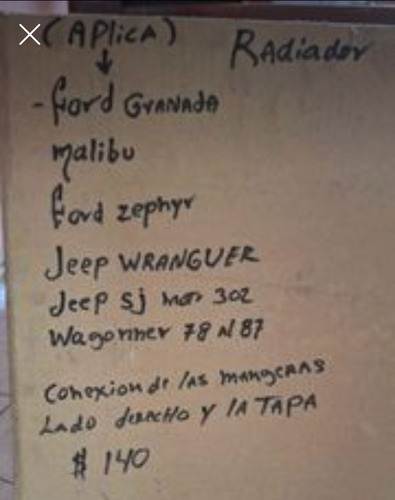 (APlicA) RAdiador
- ford GrANADA
malibu
ford zephyr
Jeep WRANGUER
Jeep Sj mor 302
Wagonner 78 Al 87
Conexion de las mangeras
Lado derecho y la TAPA
$ 140